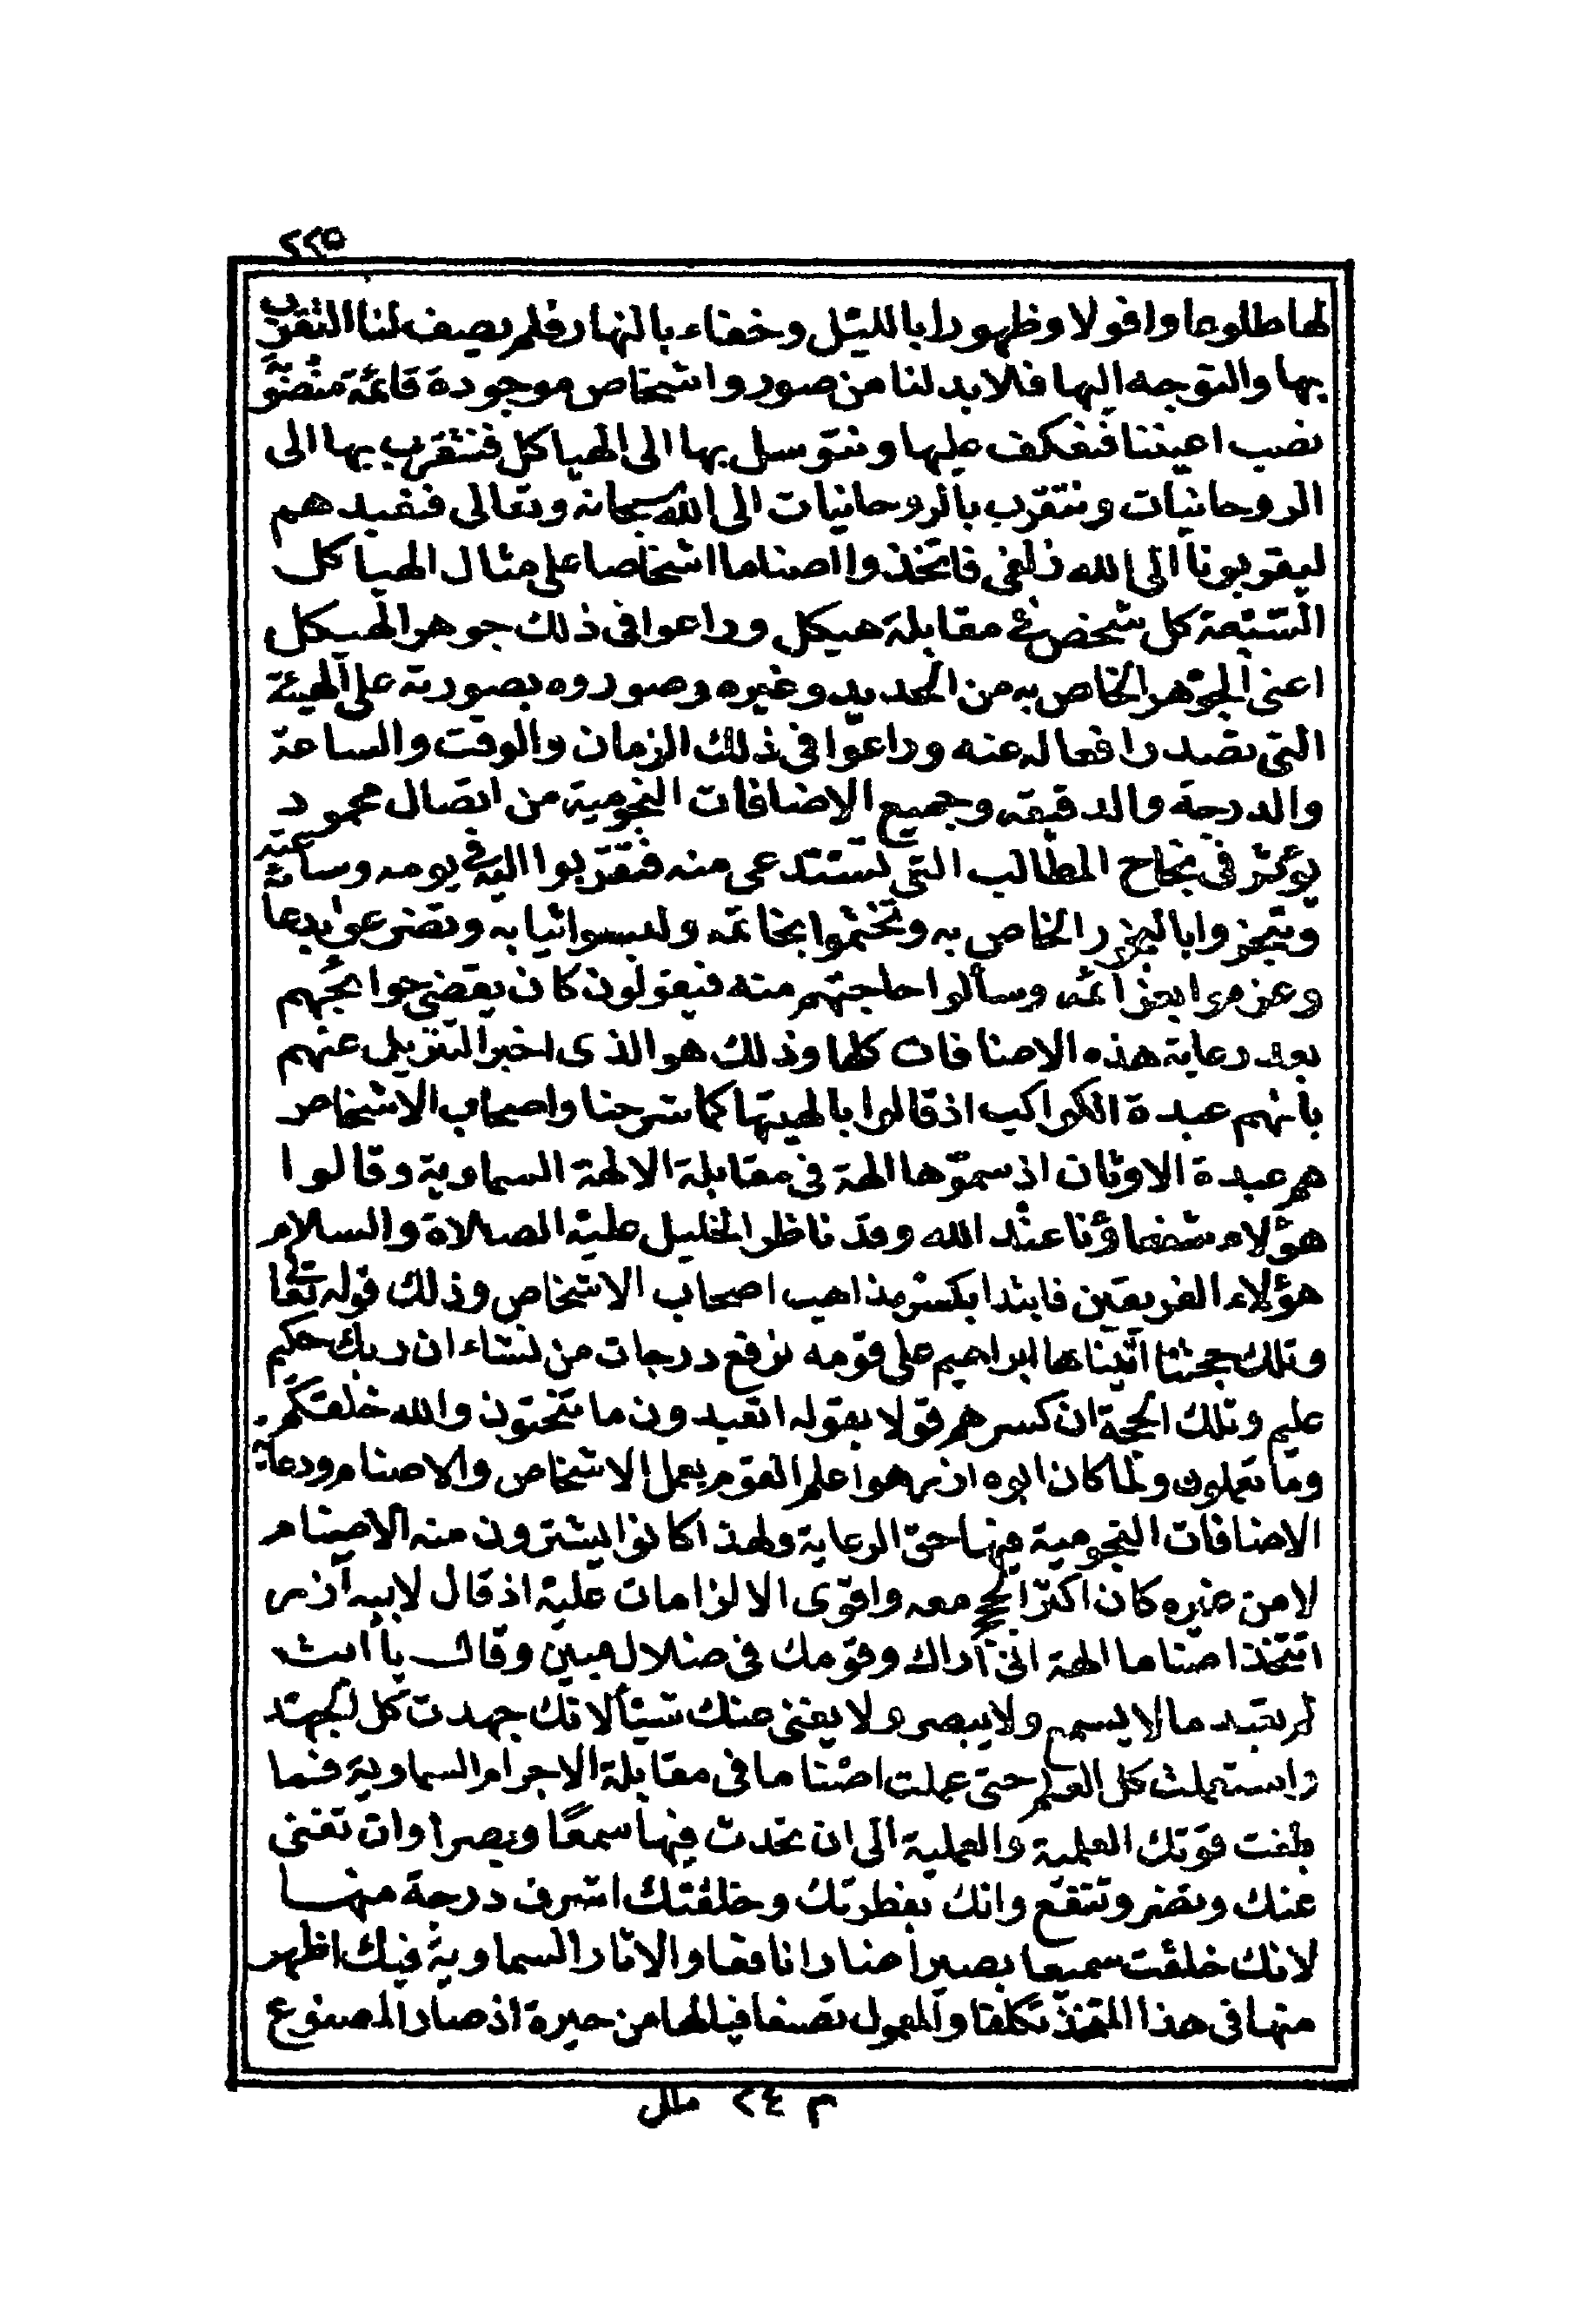 ٢٢٥
لها طلوعا وافولا وظهورا بالليل وخفاء بالنهار فلم يصف لنا التقرب
بها والتوجه اليها فلا بد لنا من صور واشخاص موجودة قائمة منصوبة
نصب اعيننا فنعكف عليها ونتوسل بها الى الهياكل فنتقرب بها الى
الروحانيات ونتقرب بالروحانيات الى الله سبحانه وتعالى فنعبدهم
ليقربونا الى الله زلفى فاتخذوا اصناما اشخاصا على مثال الهياكل
السبعة كل شخص في مقابلة هيكل وراعوا في ذلك جوهر الهيكل
اعنى الجوهر الخاص به من الحديد وغيره وصوروه بصورته على الهيئة
التي تصدر افعاله عنه وراعوا في ذلك الزمان والوقت والساعة
والدرجة والدقيقه وجميع الاضافات النجومية من اتصال محمود
يؤثر في نجاح المطالب التي تستدعى منه فتقربوا اليه في يومه وساعته
وتبخروا بالبخور الخاص به وتختموا بخاتمه ولبسوا ثيابه وتضرعوا بدعائه
وعزموا بعزائمه وسألوا حاجتهم منه فيقولون كان يقضى حوائجهم
بعد رعاية هذه الاضافات كلها وذلك هو الذى اخبر التنزيل عنهم
بانهم عبدة الكواكب اذ قالوا بالهيتها كما شرحنا واصحاب الاشخاص
هم عبدة الاوثان اذ سموها الهة في مقابلة الالهة السماوية وقالوا
هؤلاء شفعاؤنا عند الله وقد ناظر الخليل عليه الصلاة والسلام
هؤلاء الفريقين فابتدا بكسر مذاهب اصحاب الاشخاص وذلك قوله تعالى
وتلك حجتنا اتيناها ابراهيم على قومه نرفع درجات من نشاء ان ربك حكيم
عليم وتلك الحجة ان كسرهم قولا بقوله اتعبدون ما تنحتون والله خلقكم
وما تعملون ولما كان ابوه ازر هو اعلم القوم بعمل الاشخاص والاصنام ورعاية
الاضافات النجومية فيها حق الرعاية ولهذا كانوا يشترون منه الاصنام
لا من غيره كان اكثر الحجج معه واقوى الالزامات عليه اذ قال لابيه آزر
اتتخذ اصناما الهة انى اراك وقومك في ضلال مبين وقال يا ابت
لم تعبد ما لا يسمع ولا يبصر ولا يغنى عنك شيئا لانك جهدت كل الجهد
واستعملت كل العلم حتى عملت اصناما في مقابلة الاجرام السماوية فما
بلغت قوتك العلمية والعملية الى ان تحدث فيها سمعا وبصرا وان تغنى
عنك وتضر وتنفع وانك بفطرتك وخلقتك اشرف درجة منها
لانك خلقت سميعا بصيرا ضارا نافعا والاثار السماوية فيك اظهر
منها في هذا المتخذ تكلفا والمعمول تصنعا فيا لها من حيرة اذ صار المصنوع
م ٢٤ ملل